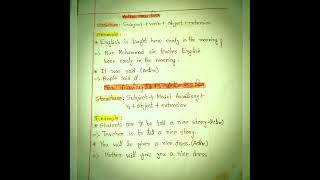 Structure: Subject + verb + object + extension
Example
* English is taught here early in the morning.
⇒ Noor Mohammad sir teaches English
here early in the morning.
* It was said. (Active)
⇒ People said it.
Structure: Subject + Modal Auxiliary +
V1 + object + extension
Example:
* Students are to be told a nice story. (Active)
⇒ Teacher is to tell a nice story.
* You will be given a nice dress. (Active)
⇒ Mother will give you a nice dress